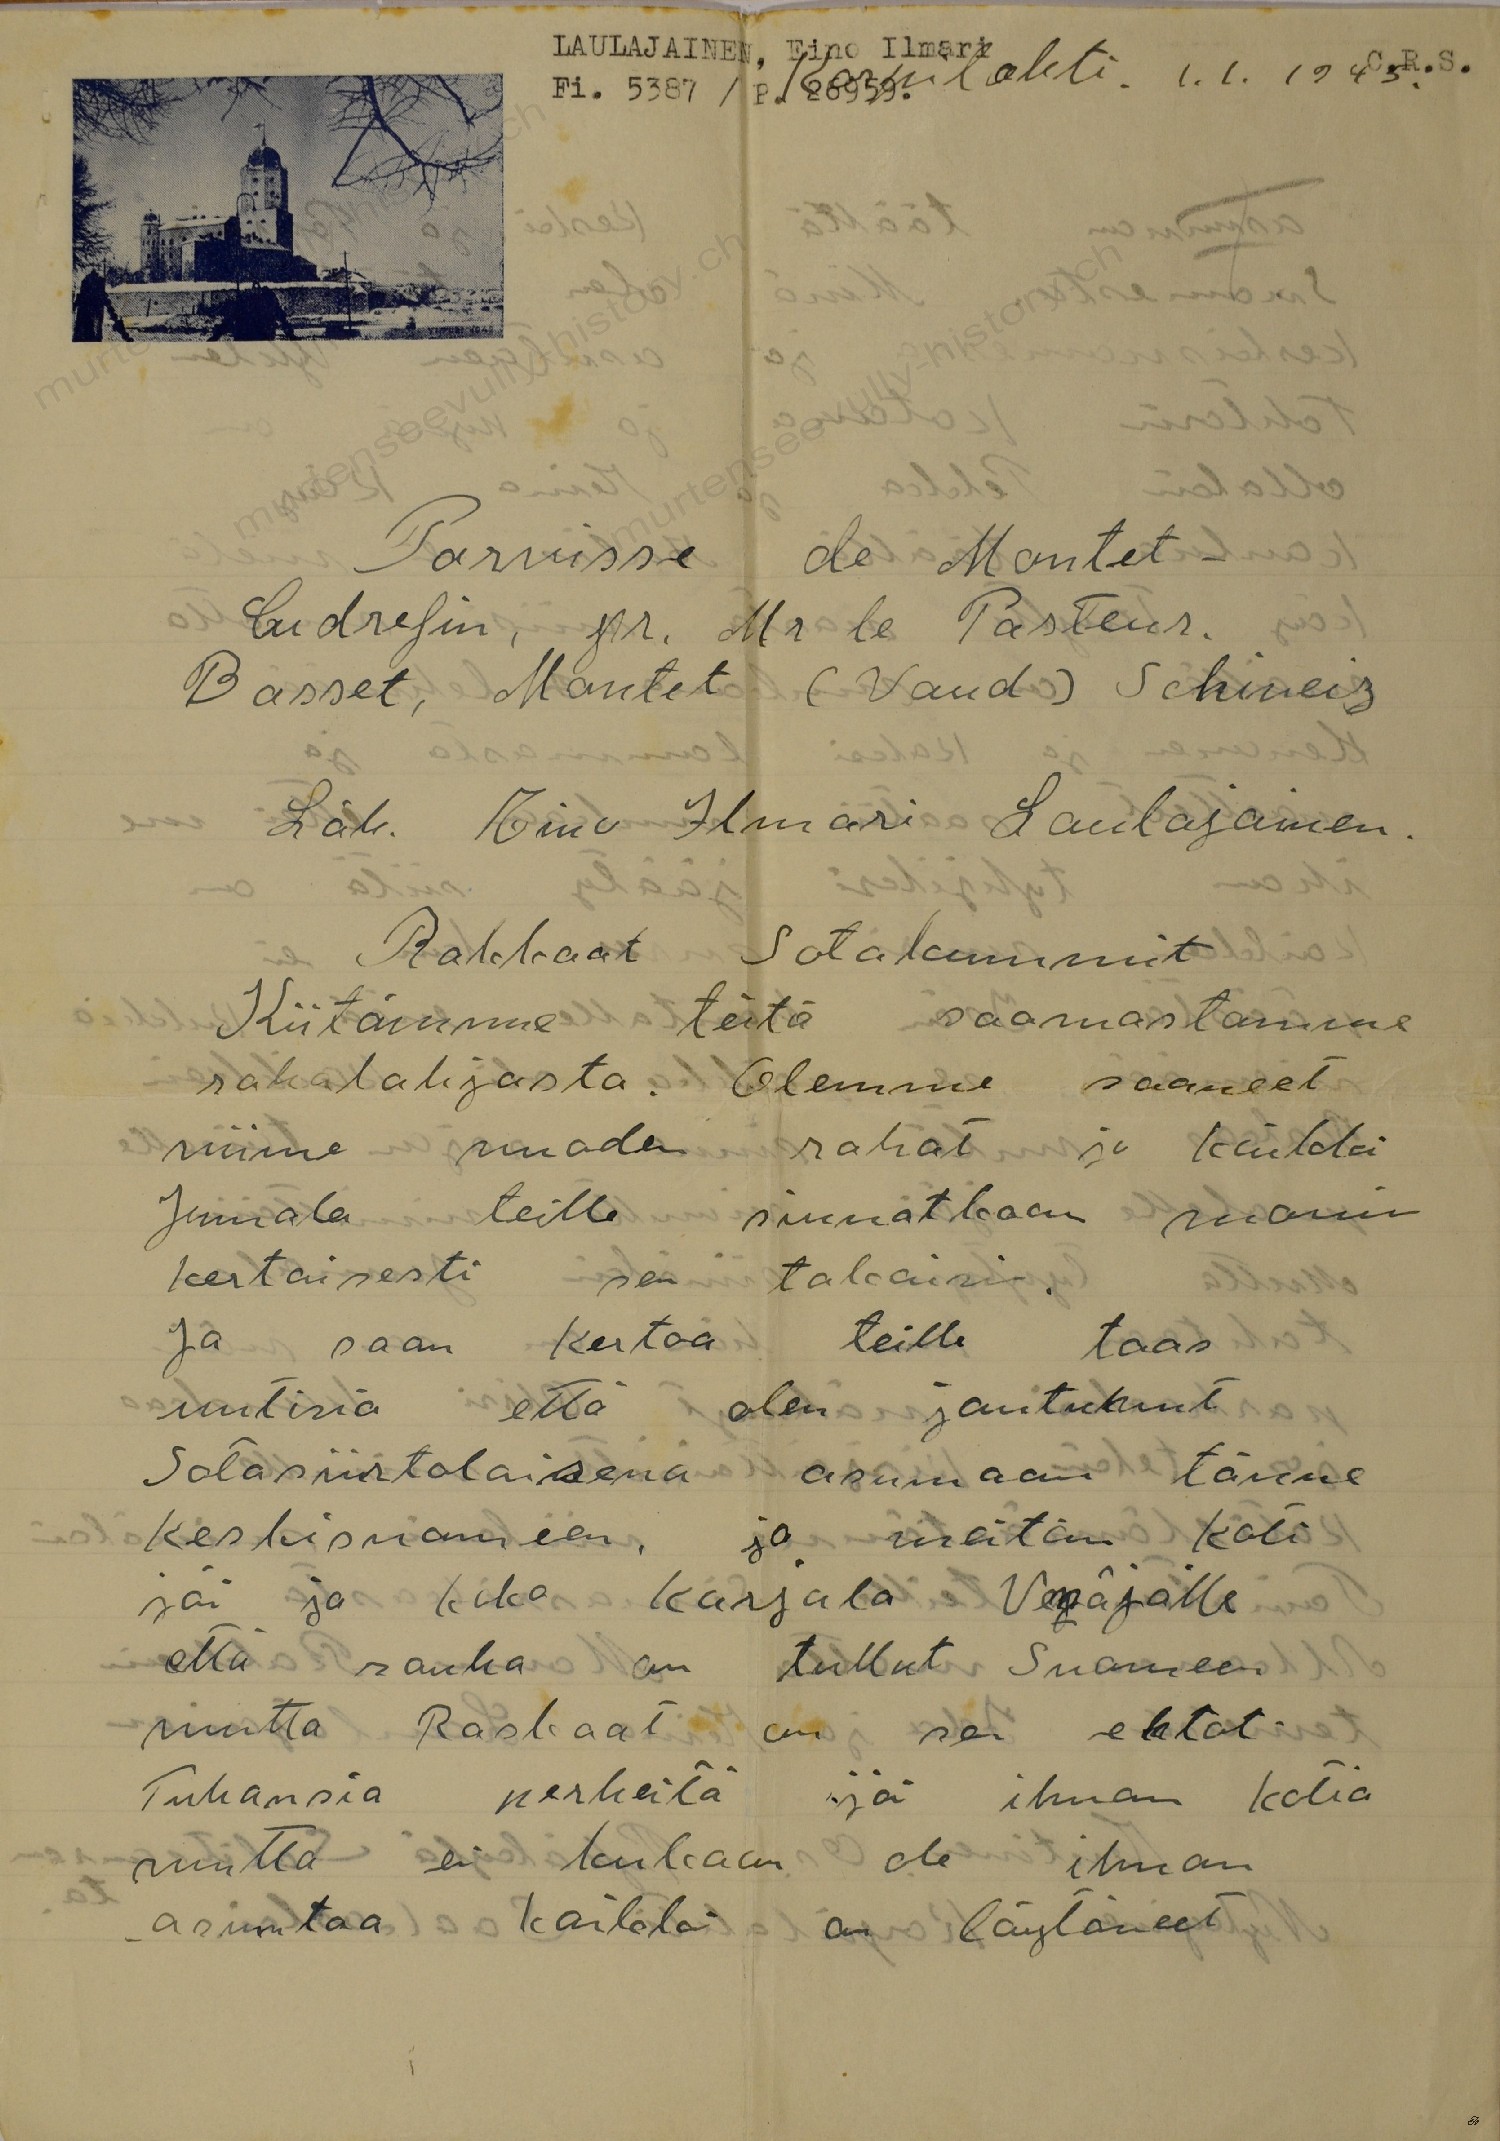 LAULAJAINEN, Eino Ilmari
C.R.S.
Fi. 5387 / P. 26959.
1.1. 1945.
Parvisse de Montet-
Cudrefin, pr. Mr le Pasteur.
Basset, Montet (Vaud) Schweiz
Läh. Eino Ilmari Laulajainen.
Rakkaat Sotakummit
Kiitämme teitä saamastamme
rahalahjasta. Olemme saaneet
viime vuoden rahat ja kaikki
Jumala teille siunatkoon monin
kertaisesti sen takaisin.
Ja saan kertoa teille taas
uutisia että olen joutunut
Sotasiirtolaisena asumaan tänne
Keskisuomeen, ja meitän koti
jäi ja koko Karjala Venäjälle
että rauha on tullut Suomeen
mutta Raskaat on sen ehtot.
Tuhansia perheitä jäi ilman kotia
mutta ei kukaan ole ilman
asuntoa kaikki on löytäneet